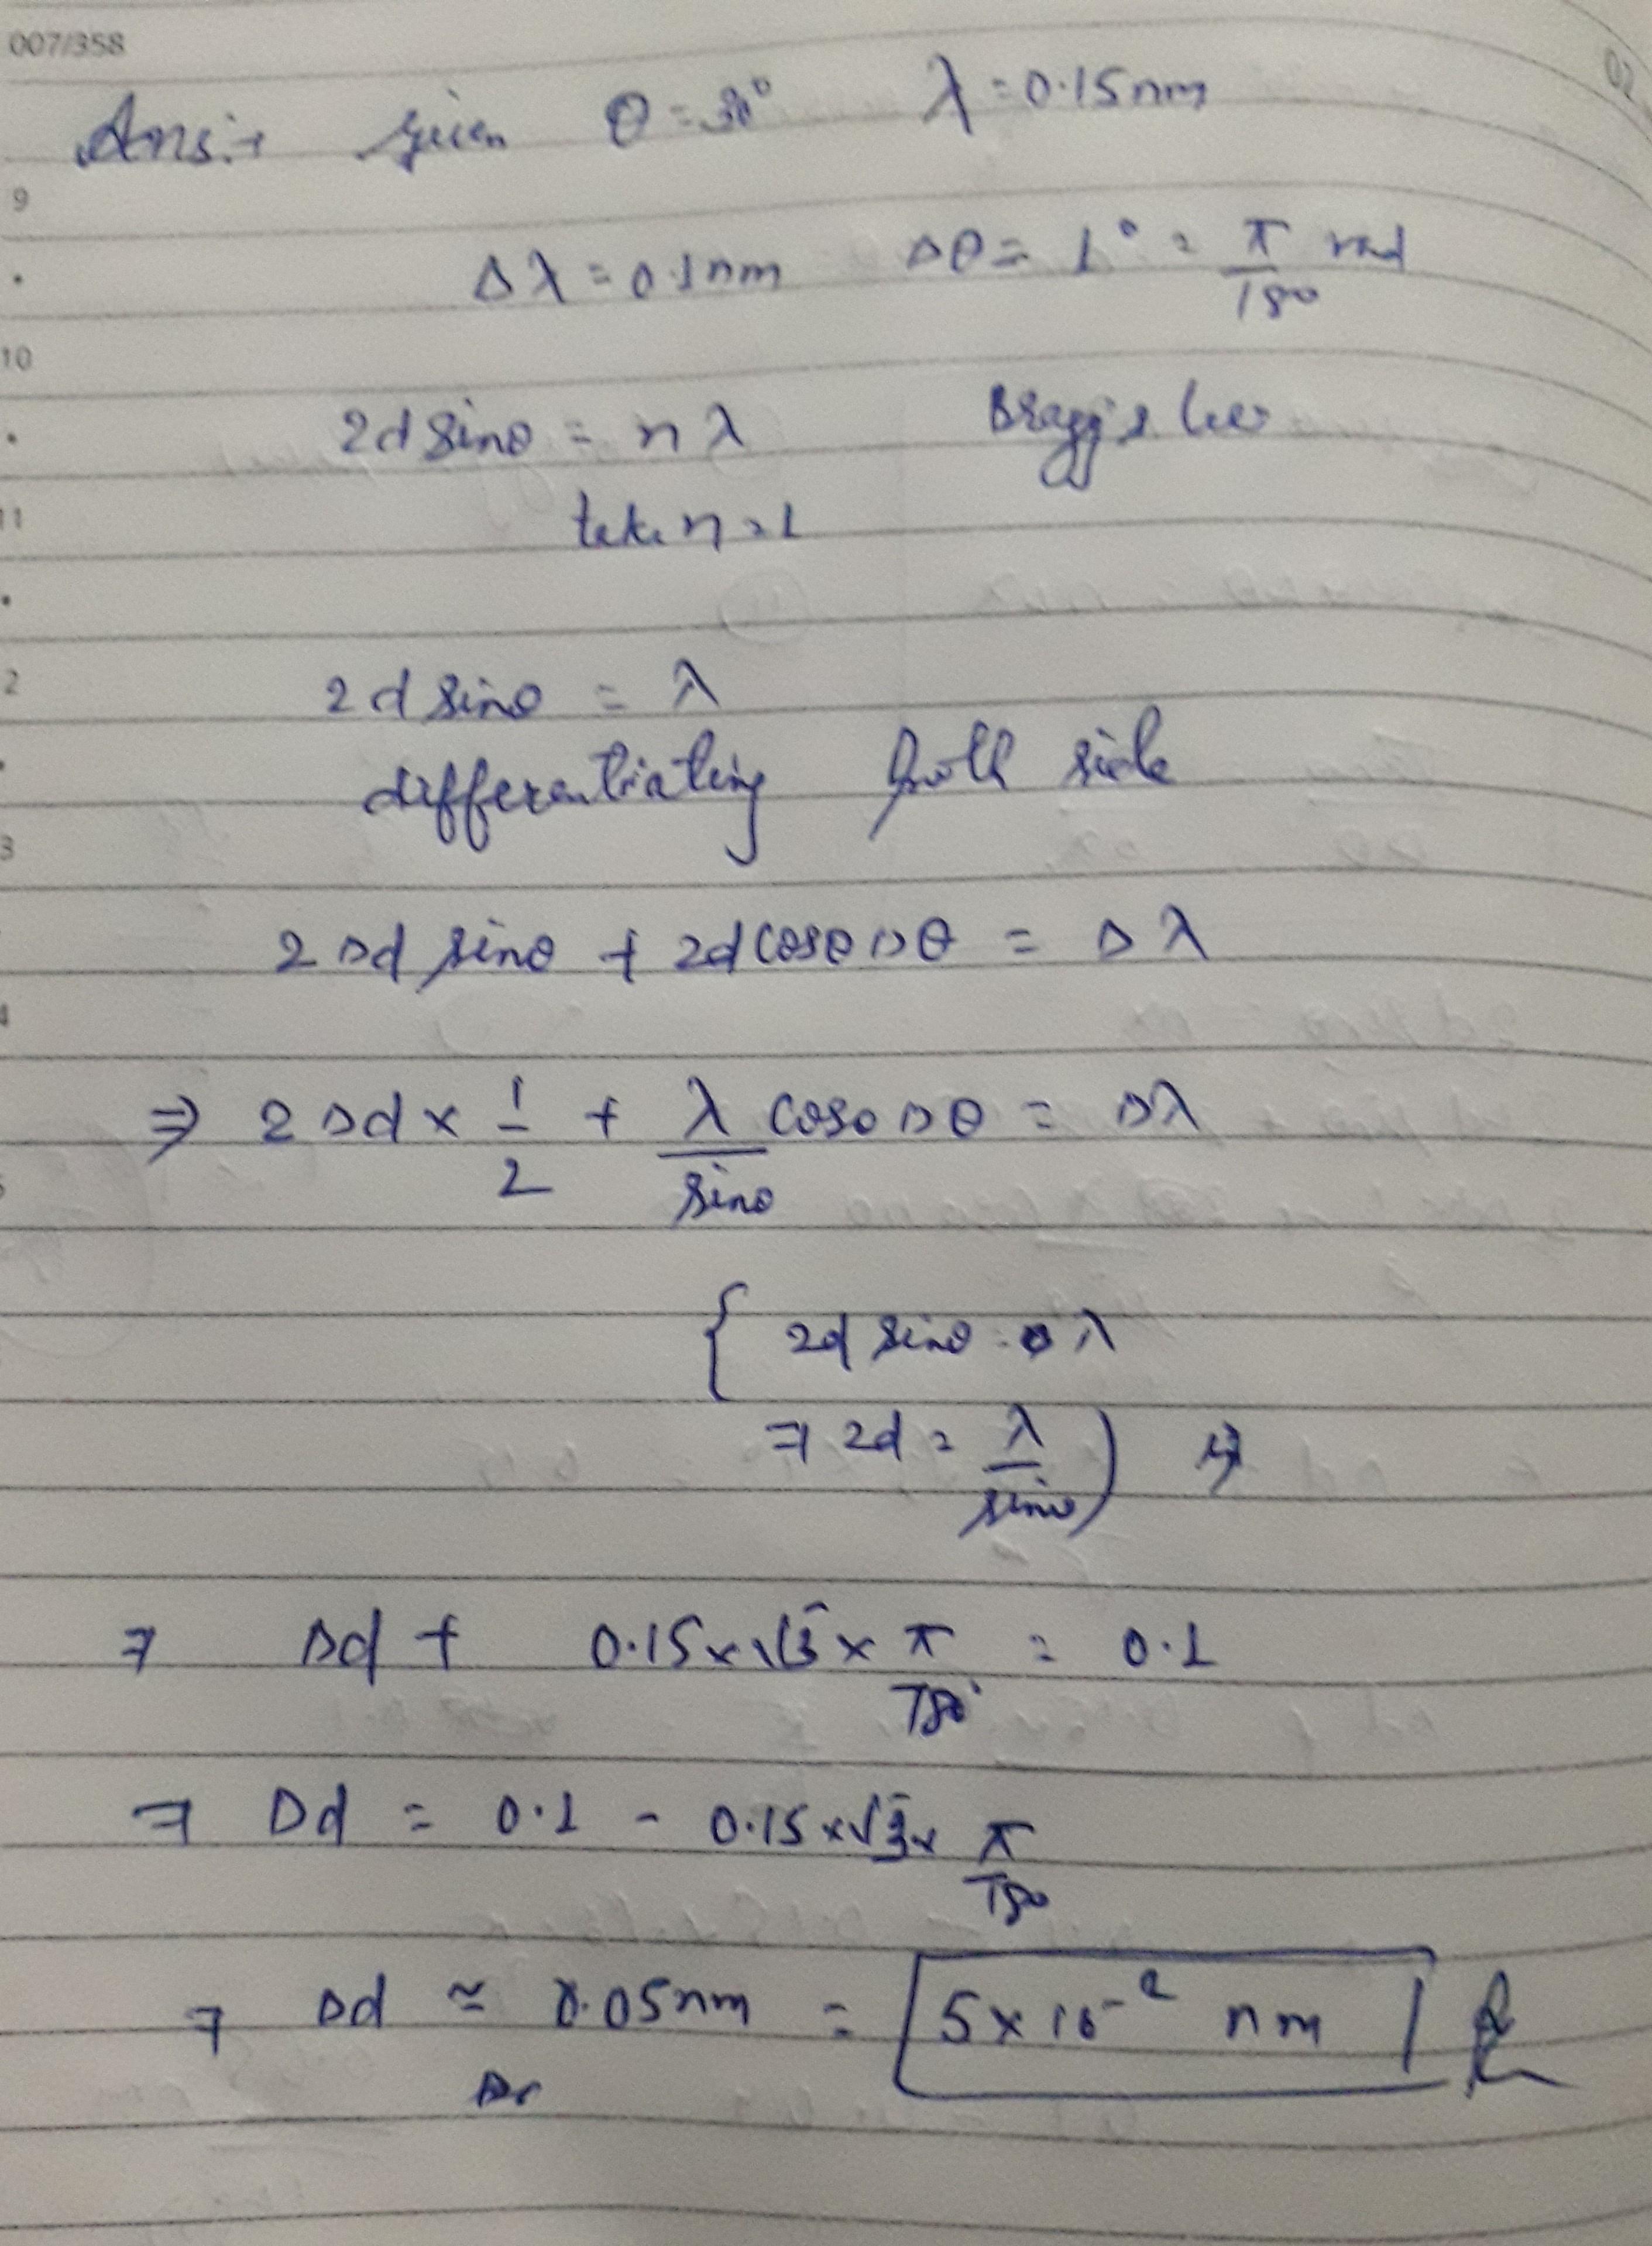 007/358
Ans:→ given θ = 30° λ = 0.15 nm
9
Δλ = 0.1 nm Δθ = 1° = π/180 rad
10
2d sinθ = nλ Bragg's law
11
take n = 1
2
2d sinθ = λ
differentiating both side
3
2Δd sinθ + 2d cosθ Δθ = Δλ
4
⇒ 2Δd × 1/2 + λ/sinθ cosθ Δθ = Δλ
{ 2d sinθ = λ
⇒ 2d = λ/sinθ ) ⇒
⇒ Δd + 0.15 × √3 × π/180 = 0.1
⇒ Δd = 0.1 - 0.15 × √3 × π/180
⇒ Δd ≃ 0.05 nm = 5 × 10⁻² nm